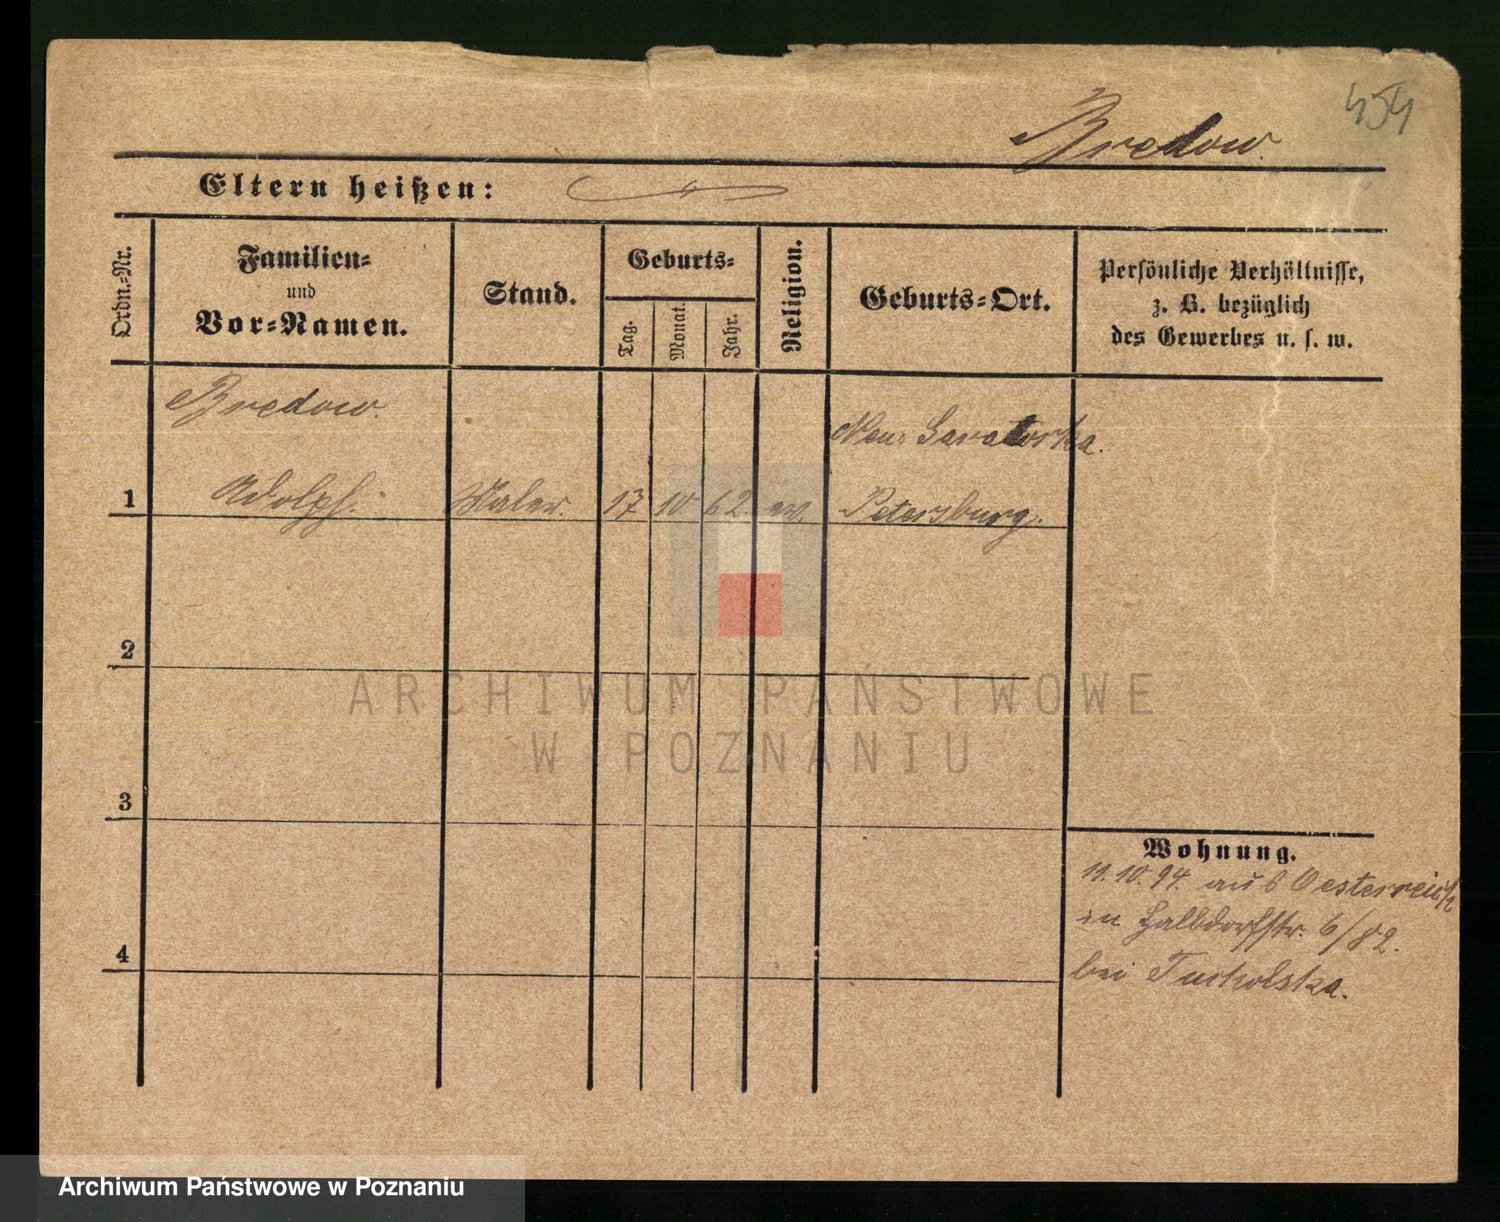 454
Bredow.
Eltern heißen:
Ordn.-Nr.
Familien-
und
Vor-Namen.
Stand.
Geburts-
Tag.
Monat.
Jahr.
Religion.
Geburts-Ort.
Persönliche Verhältnisse,
z. B. bezüglich
des Gewerbes u. s. w.
Bredow.
Neu-
1 Adolph. Maler. 17 10 62 ev. Petersburg.
2
ARCHIWUM PAŃSTWOWE
W POZNANIU
3
Wohnung.
11.10.94. aus Oesterreich
in Halbdorfstr. 6/82.
4
bei Tucholska.
Archiwum Państwowe w Poznaniu